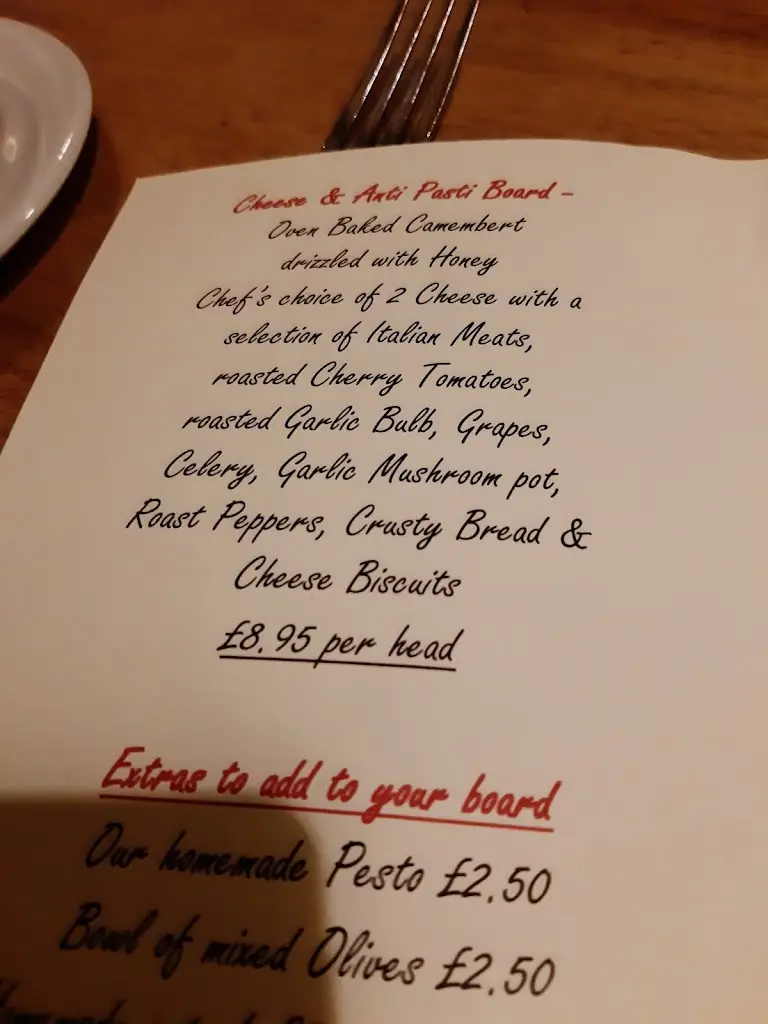 Cheese & Anti Pasti Board -
Oven Baked Camembert
drizzled with Honey
Chef's choice of 2 Cheese with a
selection of Italian Meats,
roasted Cherry Tomatoes,
roasted Garlic Bulb, Grapes,
Celery, Garlic Mushroom pot,
Roast Peppers, Crusty Bread &
Cheese Biscuits
£8.95 per head
Extras to add to your board
Our homemade Pesto £2.50
Bowl of mixed Olives £2.50